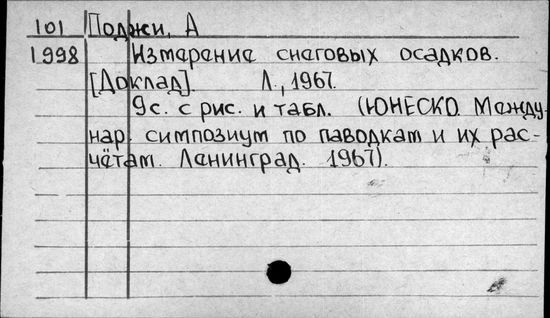 101 Поджи, А
1998 Измерение снеговых осадков.
[Доклад]. Л., 1967.
9с. с рис. и табл. (ЮНЕСКО. Между-
нар. симпозиум по паводкам и их рас-
чётам. Ленинград. 1967).